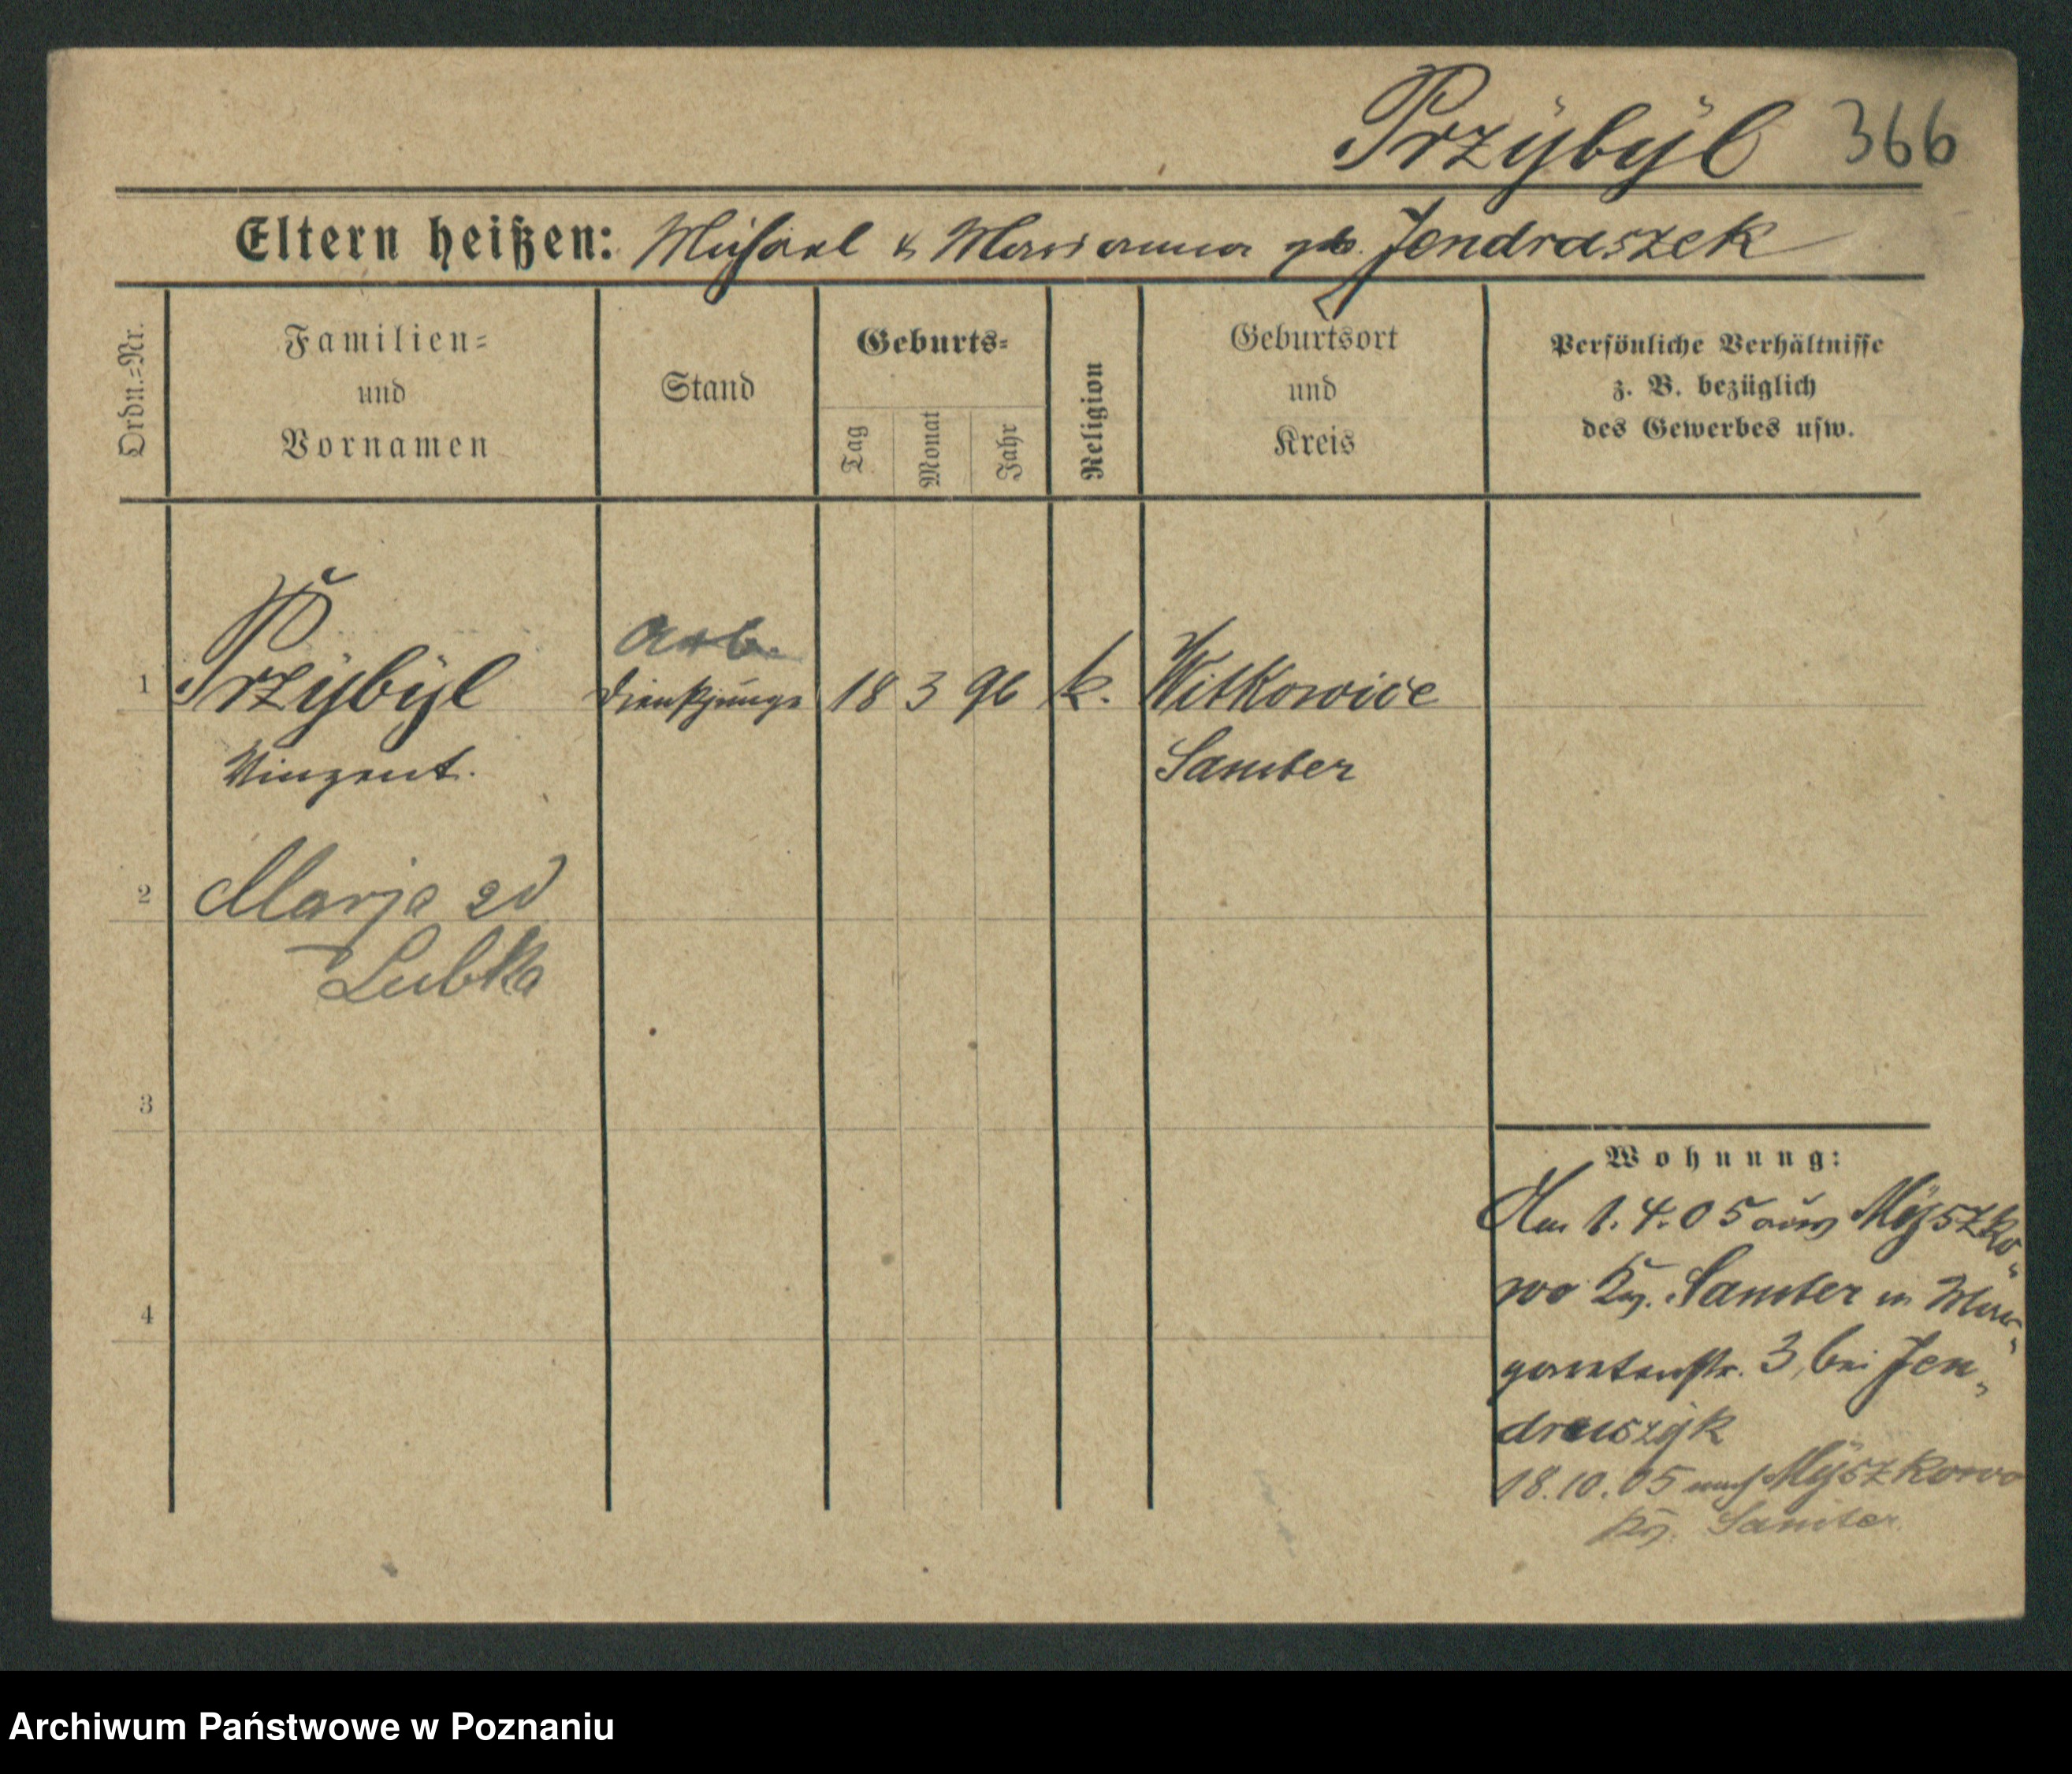 Przÿbÿl 366
Eltern heißen: Michael & Marianna geb. Jendraszek
Ordn.=Nr.
Familien=
und
Vornamen
Stand
Geburts=
Tag
Monat
Jahr
Religion
Geburtsort
und
Kreis
Persönliche Verhältnisse
z. B. bezüglich
des Gewerbes usw.
Arb.
1 Przÿbÿl Dienstjunge 18 3 96 k. Witkowice
Vinzent. Samter
2 Marja zd
Lubka
3
4
Wohnung:
Am 1.4.05 aus Mÿszko-
wo Krs. Samter in Mar-
garetenstr. 3, bei Jen-
draszÿk
18.10.05 nach Mÿszkowo
Krs. Samter
Archiwum Państwowe w Poznaniu